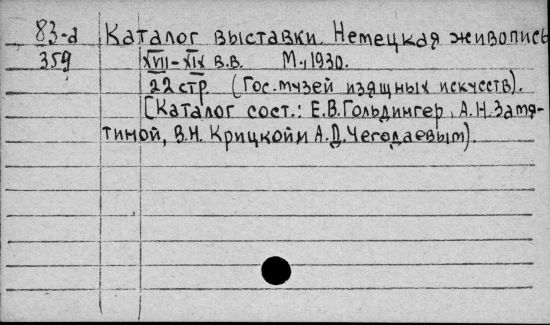 83-а Каталог выставки. Немецкая живопись
359 XVII-XIX в.в. М., 1930.
22 стр. (Гос. музей изящных искусств).
[Каталог сост.: Е.В. Гольдингер, А.Н. Замя-
тиной, В.Н. Крицкой и А.Д. Чегодаевым).